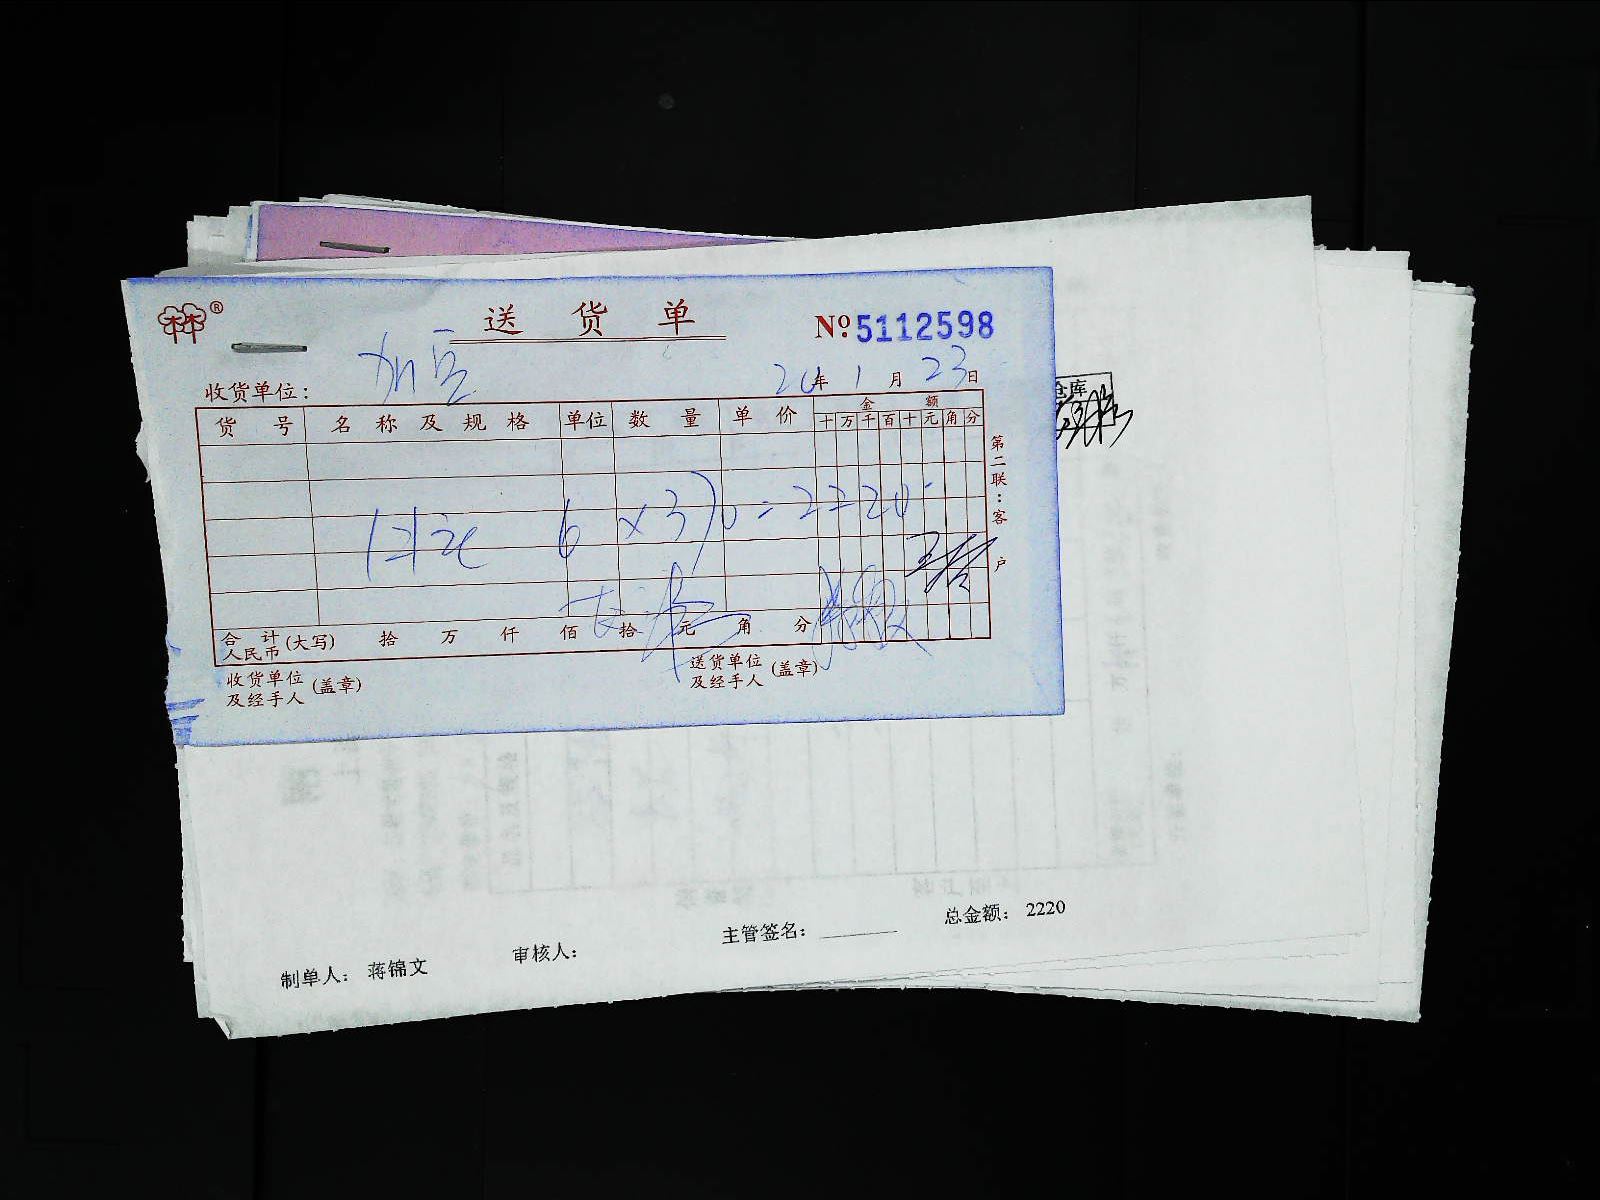 送货单
№ 5112598
收货单位：
20年1月23日
货号 名称及规格 单位 数量 单价 金额
十万千百十元角分
6 × 370 = 2220
第二联：客户
合计人民币(大写) 拾 万 仟 佰 拾 元 角 分
收货单位及经手人(盖章)
送货单位及经手人(盖章)
仓库
制单人： 蒋锦文
审核人：
主管签名：
总金额： 2220